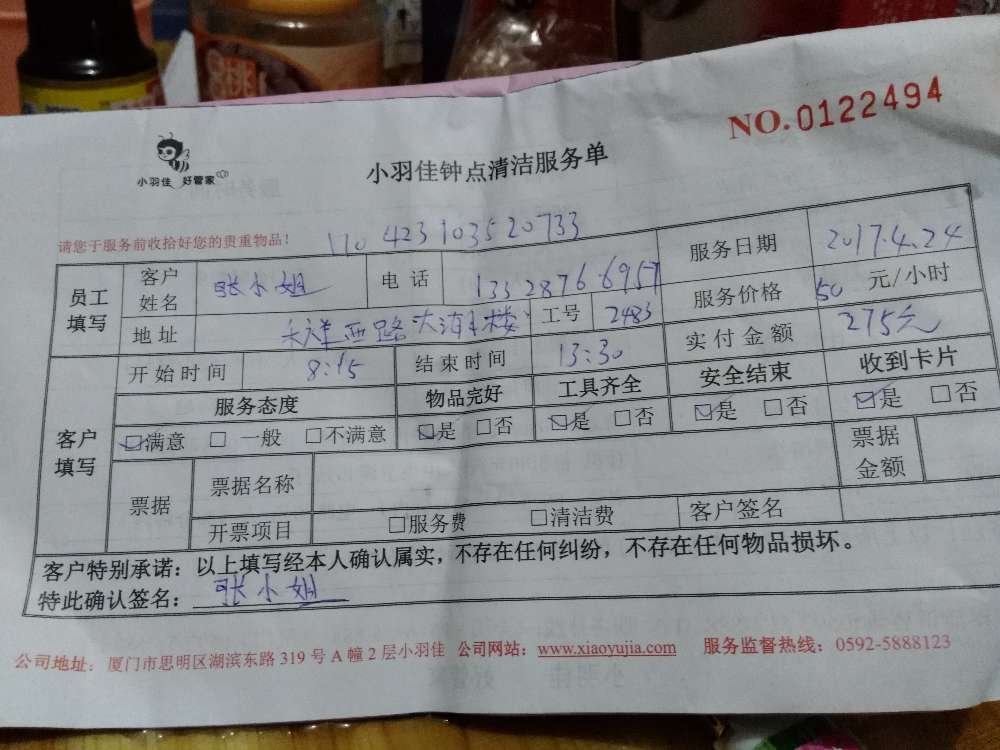 NO.0122494
小羽佳 好管家
小羽佳钟点清洁服务单
请您于服务前收拾好您的贵重物品! 110423103520733
员工填写 客户姓名 张小姐 电话 13328766957 服务日期 2017.4.24
地址 西路 楼 工号 2483 服务价格 50 元/小时
开始时间 8:15 结束时间 13:30 实付金额 275元
客户填写 服务态度 物品完好 工具齐全 安全结束 收到卡片
☑满意 □一般 □不满意 ☑是 □否 ☑是 □否 ☑是 □否 ☑是 □否
票据 票据名称 票据金额
开票项目 □服务费 □清洁费 客户签名
客户特别承诺：以上填写经本人确认属实，不存在任何纠纷，不存在任何物品损坏。
特此确认签名：张小姐
公司地址：厦门市思明区湖滨东路 319 号 A 幢 2 层小羽佳 公司网站：www.xiaoyujia.com 服务监督热线：0592-5888123